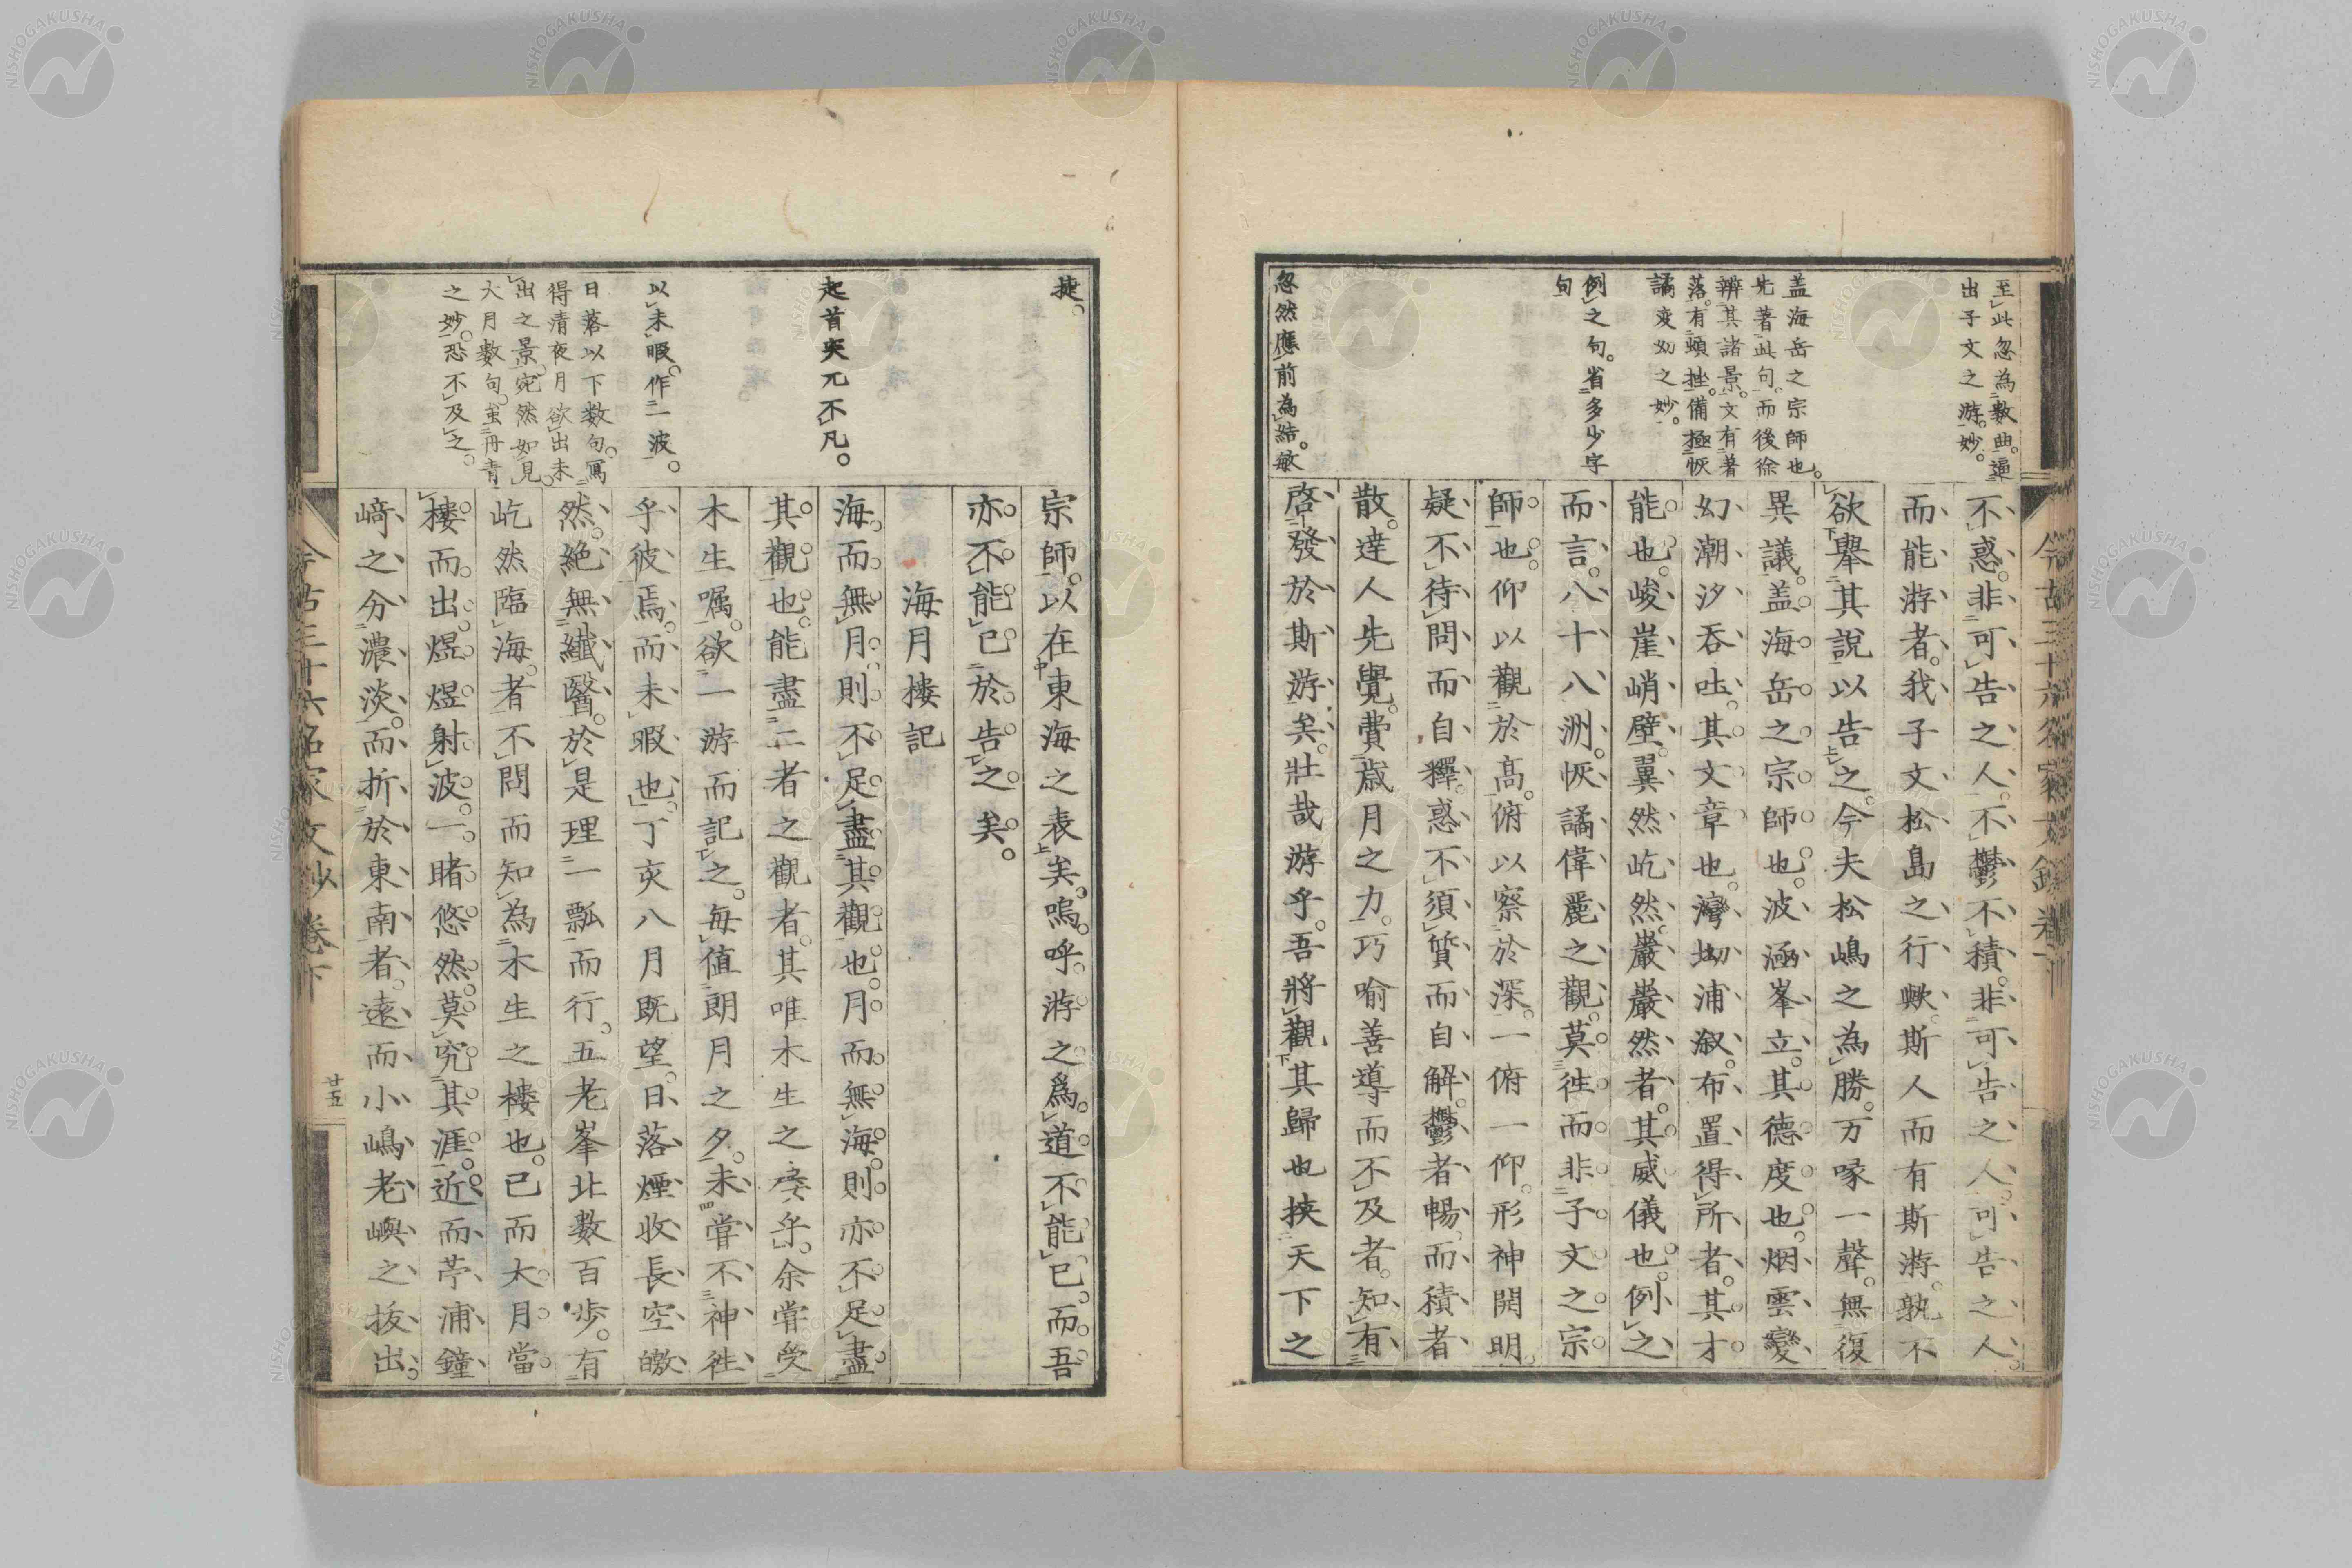 至此忽為數曲。逼
出子文之游。妙。
盖海岳之宗師也。
先著此句。而後徐
辨其諸景。文有著
落。有頓挫。備極恢
譎変幻之妙。
例之句。省多少字
句
忽然應前為結。敏
不惑。非可告之人。不鬱不積。非可告之人。可告之人。
而能游者。我子文松島之行歟。斯人而有斯游。孰不
欲擧其說以告之。今夫松嶋之為勝。万喙一聲。無復
異議。盖海岳之宗師也。波涵峯立。其德度也。烟雲變
幻。潮汐吞吐。其文章也。灣坳浦溆。布置得所者。其才
能也。峻崖峭壁。翼然屹然。巖巖然者。其威儀也。例之
而言。八十八洲。恢譎偉麗之觀。莫徃而非子文之宗
師也。仰以觀於高。俯以察於深。一俯一仰。形神開明。
疑不待問而自釋。惑不須質而自解。鬱者暢。而積者
散。達人先覺。費歲月之力。巧喻善導而不及者。知有
啓發於斯游矣。壯哉游乎。吾將觀其歸也挾天下之
今古三十六名家文鈔 卷下
捷。
起首突兀不凡。
以未暇。作一波。
日落以下数句。寫
得清夜月欲出未
出之景。宛然如見。
大月數句。虽丹青
之妙。恐不及之。
宗師。以在東海之表矣。嗚呼。游之爲道不能已。而吾
亦不能已於告之矣。
海月樓記
海而無月。則不足盡其觀也。月而無海。則亦不足盡
其觀也。能盡二者之觀者。其唯木生之楼乎。余嘗受
木生嘱。欲一游而記之。每値朗月之夕。未嘗不神徃
乎彼焉。而未暇也。丁亥八月既望。日落煙收。長空皦
然。絕無纖翳。於是理一瓢而行。五老峯北數百歩。有
屹然臨海者。不問而知為木生之樓也。已而大月當
樓而出。煜煜射波。一睹悠然。莫究其涯。近而葶浦鐘
﨑之分濃淡。而折於東南者。遠而小嶋老嶼之㧞出。
今古三十六名家文鈔 卷下
廿五